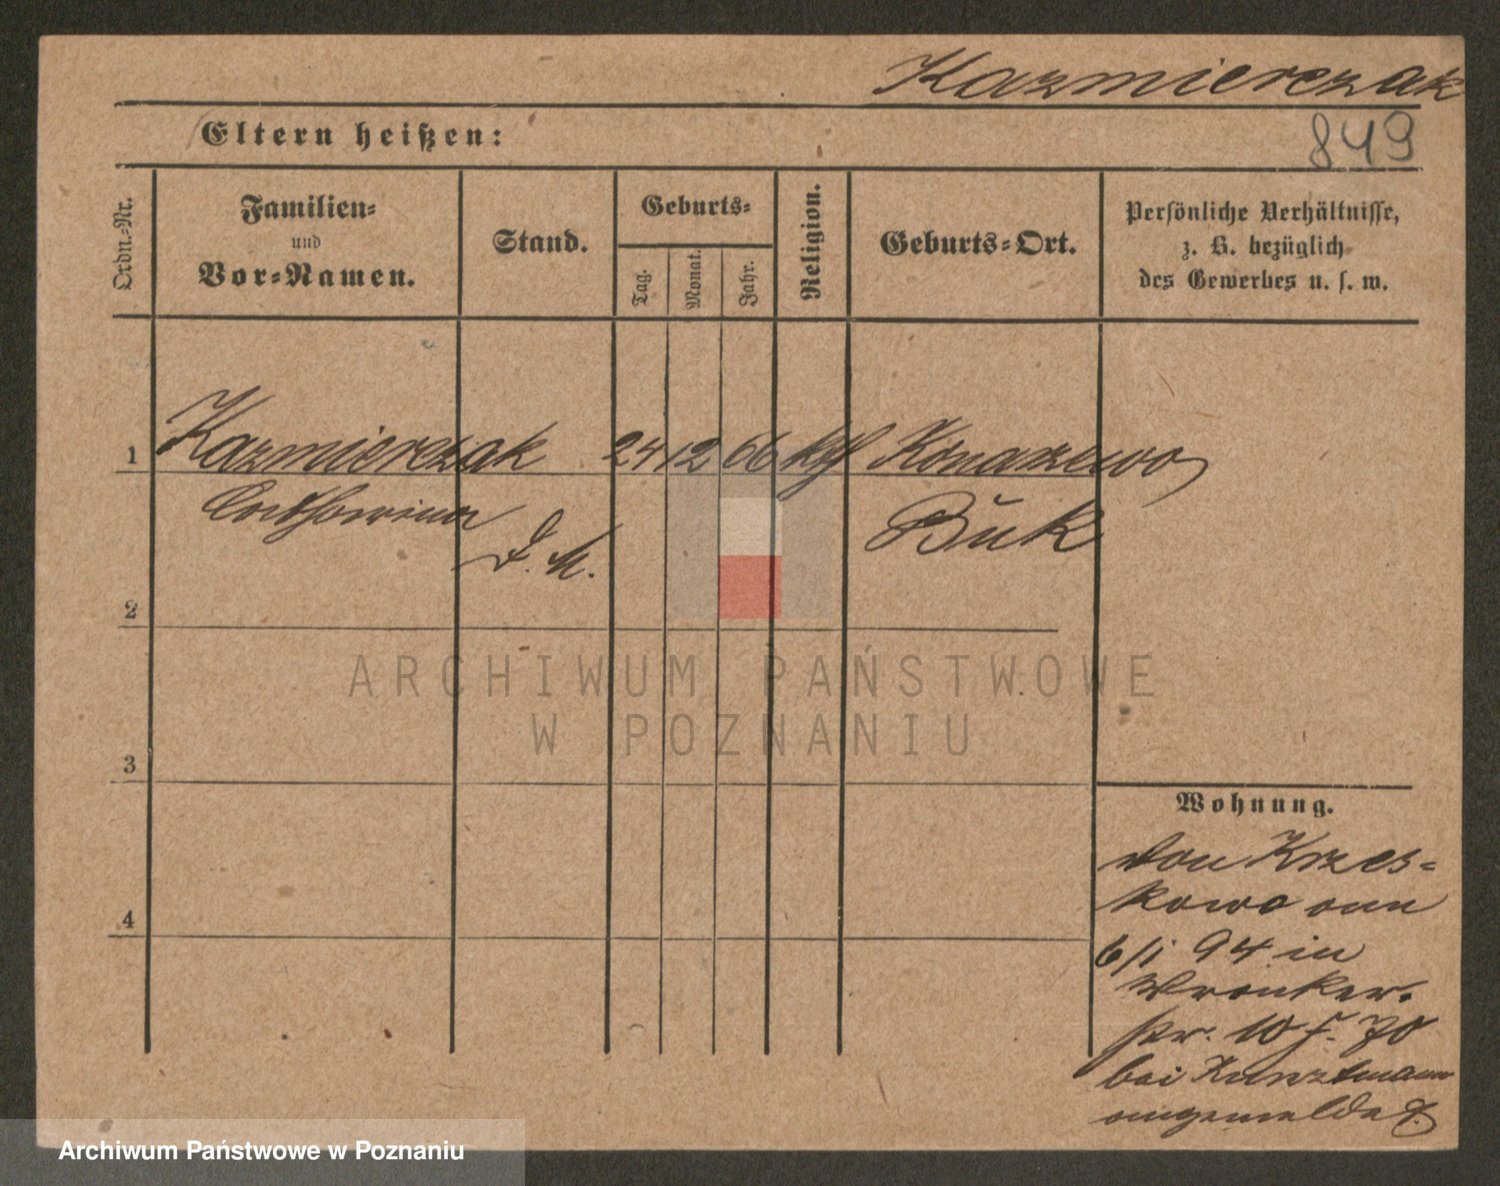 Kazmierczak
Eltern heißen:
849
Ordn.-Nr.
Familien-
und
Vor-Namen.
Stand.
Geburts-
Tag.
Monat.
Jahr.
Religion.
Geburts-Ort.
Persönliche Verhältnisse,
z. B. bezüglich
des Gewerbes u. s. w.
1 Kazmierczak 24 12 66 kth Konarzewo
Catharina
D. M.
Buk
2
3
4
Wohnung.
von Krzes-
kowo am
6/1 94 in
Wronker-
str. 10 f. 70
bei Kunztmann
angemeldet
ARCHIWUM PAŃSTWOWE
W POZNANIU
Archiwum Państwowe w Poznaniu